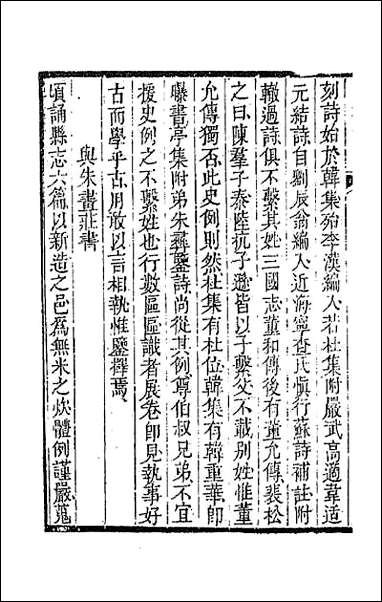 刻詩始於韓集殆李漢編入若杜集附嚴武高適韋迢
元結詩自劉辰翁編入近海寧查氏愼行蘇詩補註附
轍過詩俱不繫其姓三國志董和傳後有董允傳裴松
之曰陳羣子泰陸抗子遜皆以子繫父不載別姓惟董
允傳獨否此史例則然杜集有杜位韓集有韓重華卽
曝書亭集附弟朱彝鑒詩尚從其例尊伯叔兄弟不宜
援史例之不繫姓也行數區區識者展卷卽見執事好
古而學乎古用敢以言相執惟鑒擇焉
與朱晝莊書
頃誦縣志六篇以新造之邑爲無米之炊體例謹嚴蒐